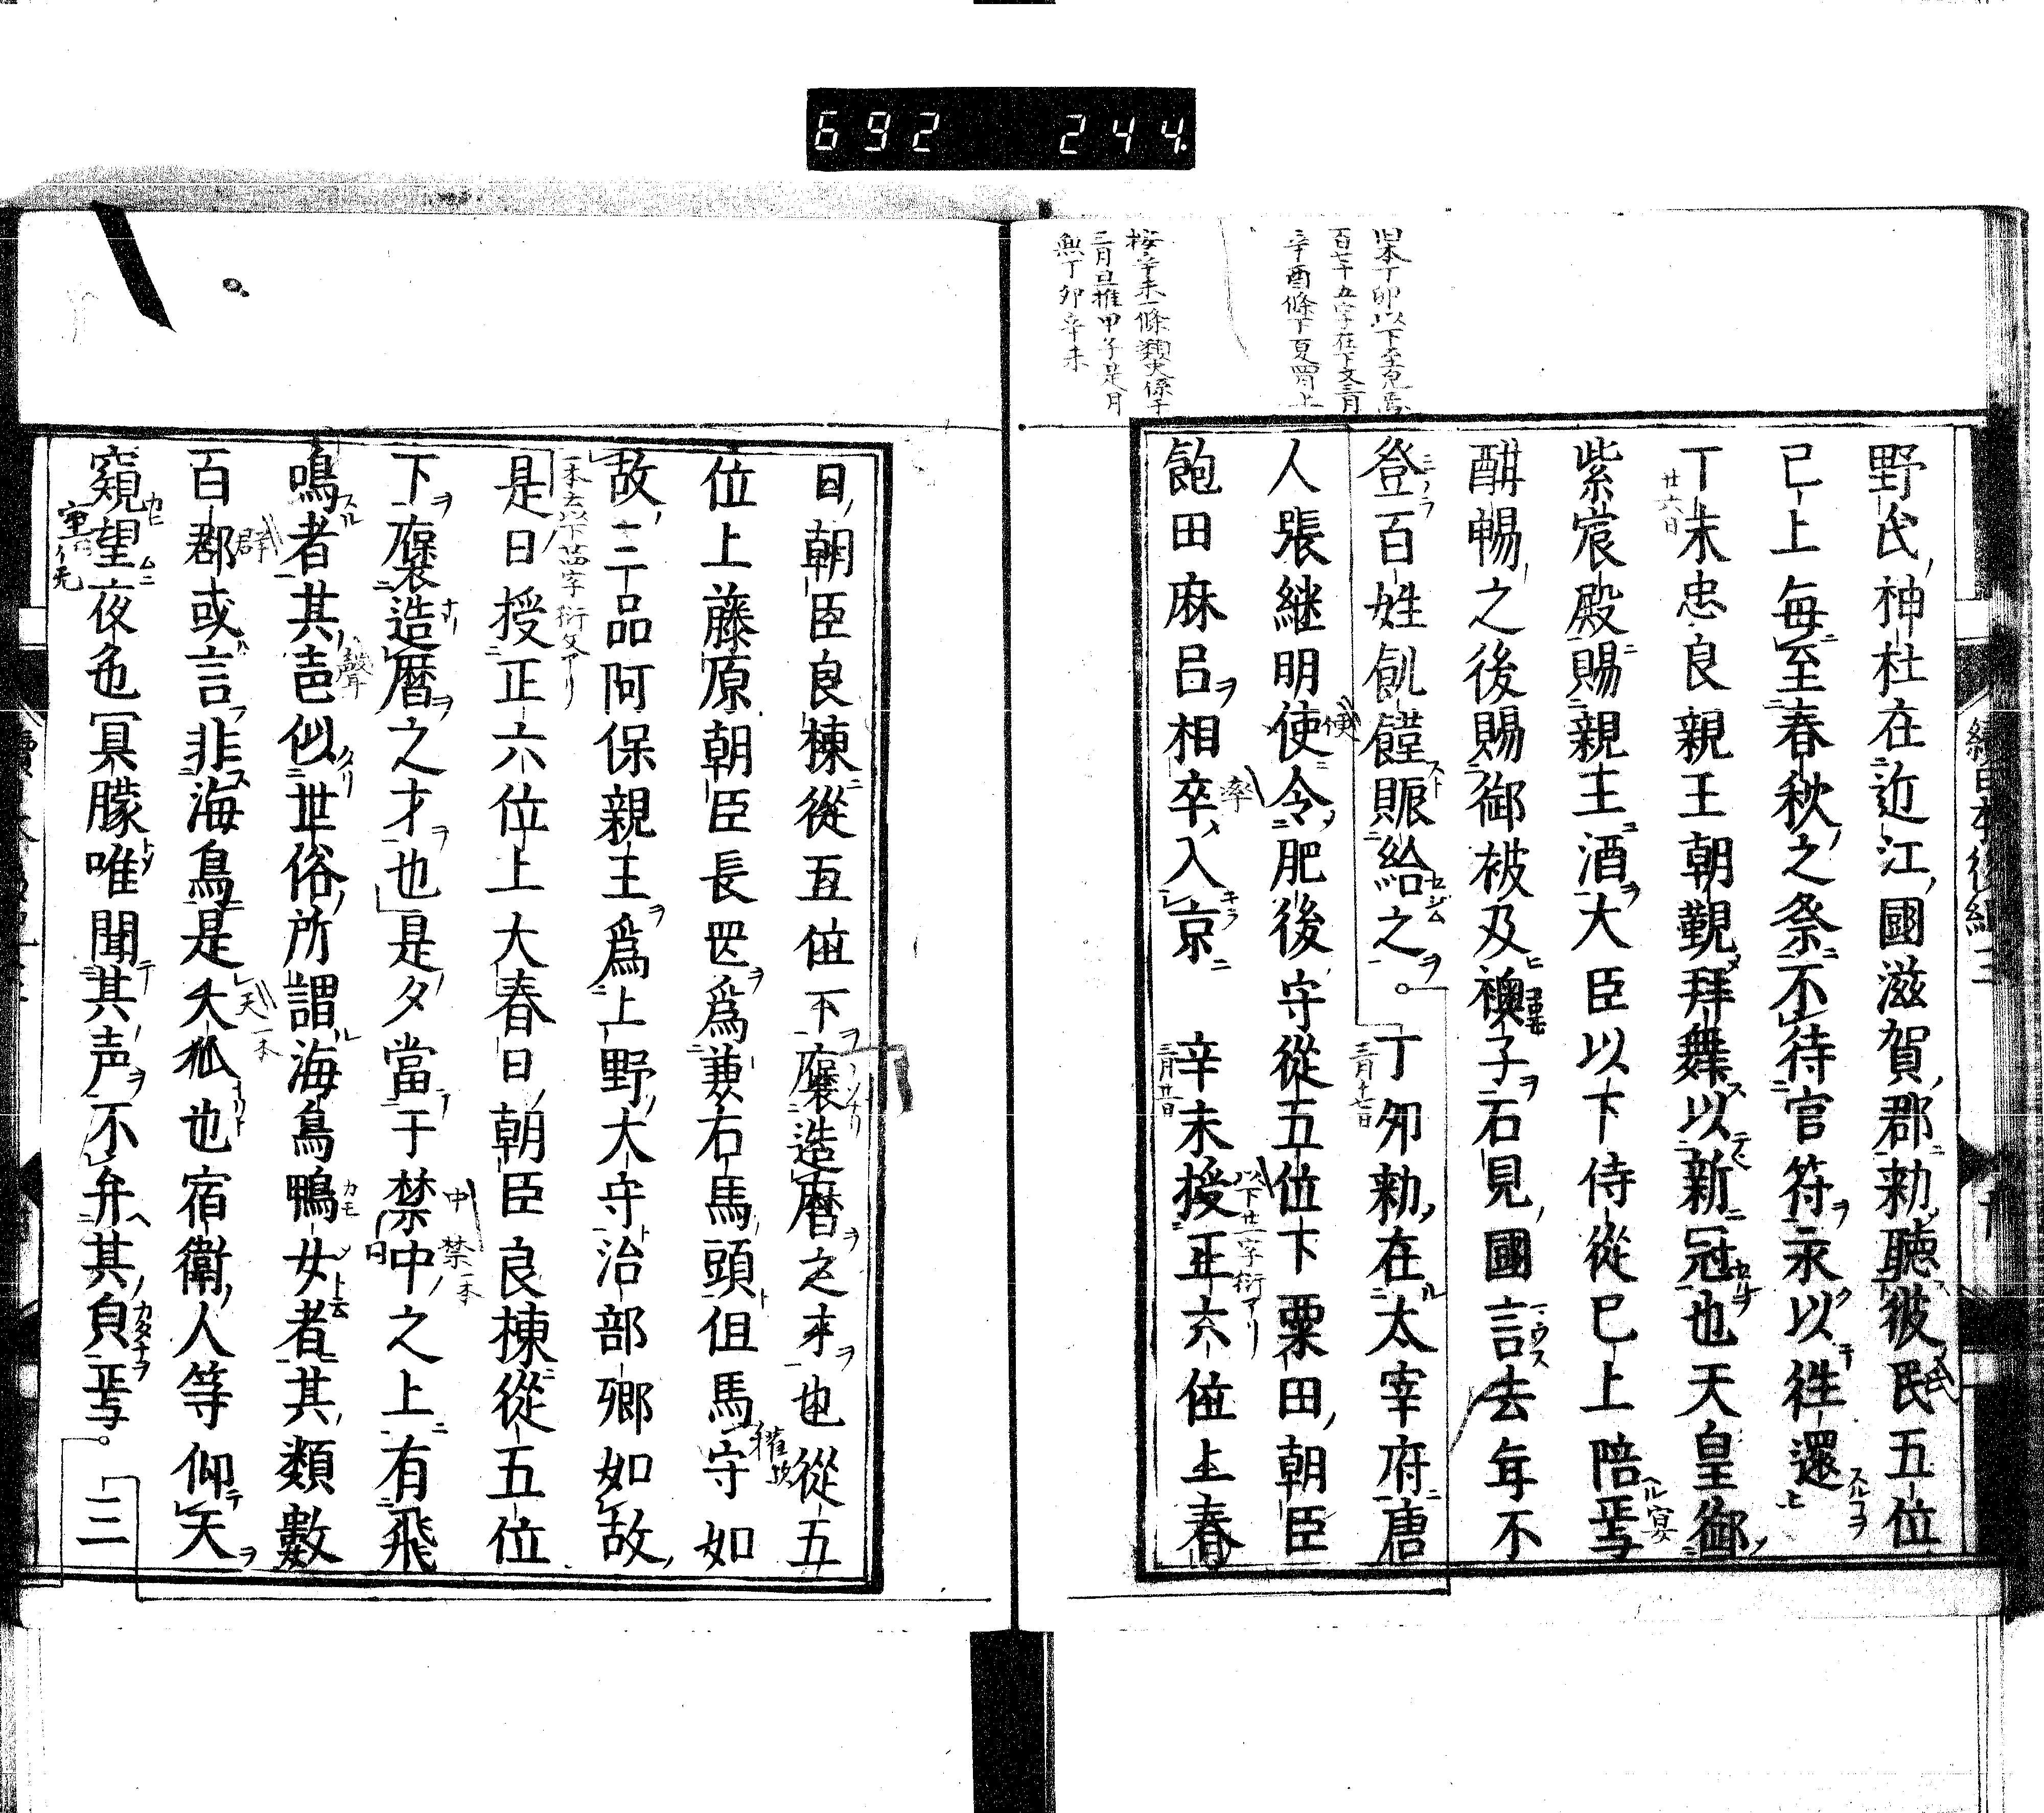 692 244.
野氏神社在近江國滋賀郡勅聴彼氏五位
已上毎至春秋之祭不待官符永以徃還
丁未忠良親王朝覲拜舞以新冠也天皇御
廿六日
紫宸殿賜親王酒大臣以下侍從已上陪焉
酣暢之後賜御被及襖子石見國言去年不
登百姓飢饉賑給之。丁夘勅在太宰府唐
三月十七日
人張継明使令肥後守從五位下粟田朝臣
飽田麻呂相卒入京 辛未授正六位上春
三月廿一日
以下廿一字衍アリ
日朝臣良棟從五位下褒造暦之才也從五
位上藤原朝臣長罡爲兼右馬頭但馬守如
故三品阿保親王爲上野大守治部郷如故
一本去以下苗字衍文アリ
是日授正六位上大春日朝臣良棟從五位
下褒造暦之才也是夕當于禁中之上有飛
鳴者其声似世俗所謂海鳥鴨女者其類數
百郡或言非海鳥是大狐也宿衛人等仰天
窺望夜色冥朦唯聞其声不弁其貟焉。三
百七十五字在下文三月
辛酉條下夏買上
按辛未一條類史係于
三月且推甲子是月
無丁卯辛未